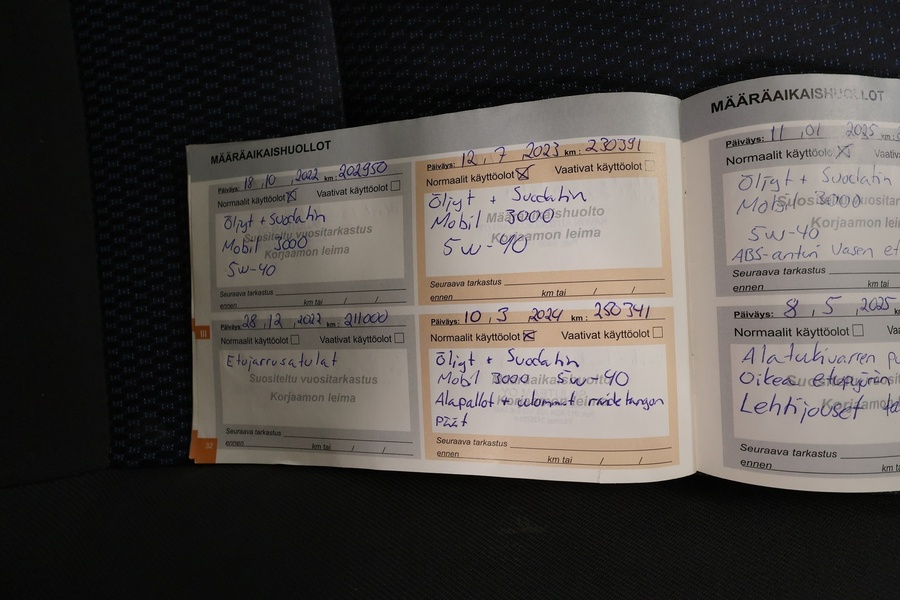 MÄÄRÄAIKAISHUOLLOT
Päiväys: 18.10.2022 km: 202950
Normaalit käyttöolot Vaativat käyttöolot
Öljyt + Suodatin
Suositeltu vuositarkastus
Mobil 3000
Korjaamon leima
5W-40
Seuraava tarkastus
ennen km tai / /
Päiväys: 28.12.2022 km: 211000
Normaalit käyttöolot Vaativat käyttöolot
Etujarrusatulat
Suositeltu vuositarkastus
Korjaamon leima
Seuraava tarkastus
ennen km tai / /
32
Päiväys: 12.7.2023 km: 230391
Normaalit käyttöolot Vaativat käyttöolot
Öljyt + Suodatin
Mobil 3000
Määräaikaishuolto
5W-40
Korjaamon leima
Seuraava tarkastus
ennen km tai / /
Päiväys: 10.3.2024 km: 250341
Normaalit käyttöolot Vaativat käyttöolot
Öljyt + Suodatin
Mobil 3000 5W-40
Alapallot + ulommat raidetangon
päät
Seuraava tarkastus
ennen km tai / /
MÄÄRÄAIKAISHUOLLOT
Päiväys: 11.01 2025 km:
Normaalit käyttöolo
Öljyt + Suodatin
Mobil 3000
Korjaamon leima
5W-40
ABS-anturi Vasen
Seuraava tarkastus
ennen km
Päiväys: 8.5.2025
Normaalit käyttöolot
Alatukivarren
Oikea
Lehtijouset
Seuraava tarkastus
ennen km